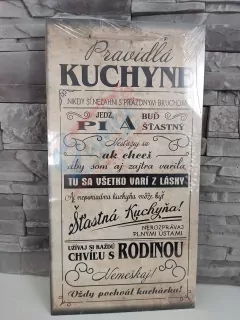 Pravidlá
KUCHYNE
NIKDY SI NEĽAHNI S PRÁZDNYM BRUCHOM
JEDZ
PI A
BUĎ
ŠŤASTNÝ
Nesťažuj sa
ak chceš
aby som aj zajtra varila
TU SA VŠETKO VARÍ Z LÁSKY
Aj neporiadna kuchyňa môže byť
Šťastná Kuchyňa!
NEROZPRÁVAJ
PLNÝMI ÚSTAMI
UŽÍVAJ SI KAŽDÚ
CHVÍĽU S RODINOU
Nemeškaj!
Vždy pochváľ kuchárku!